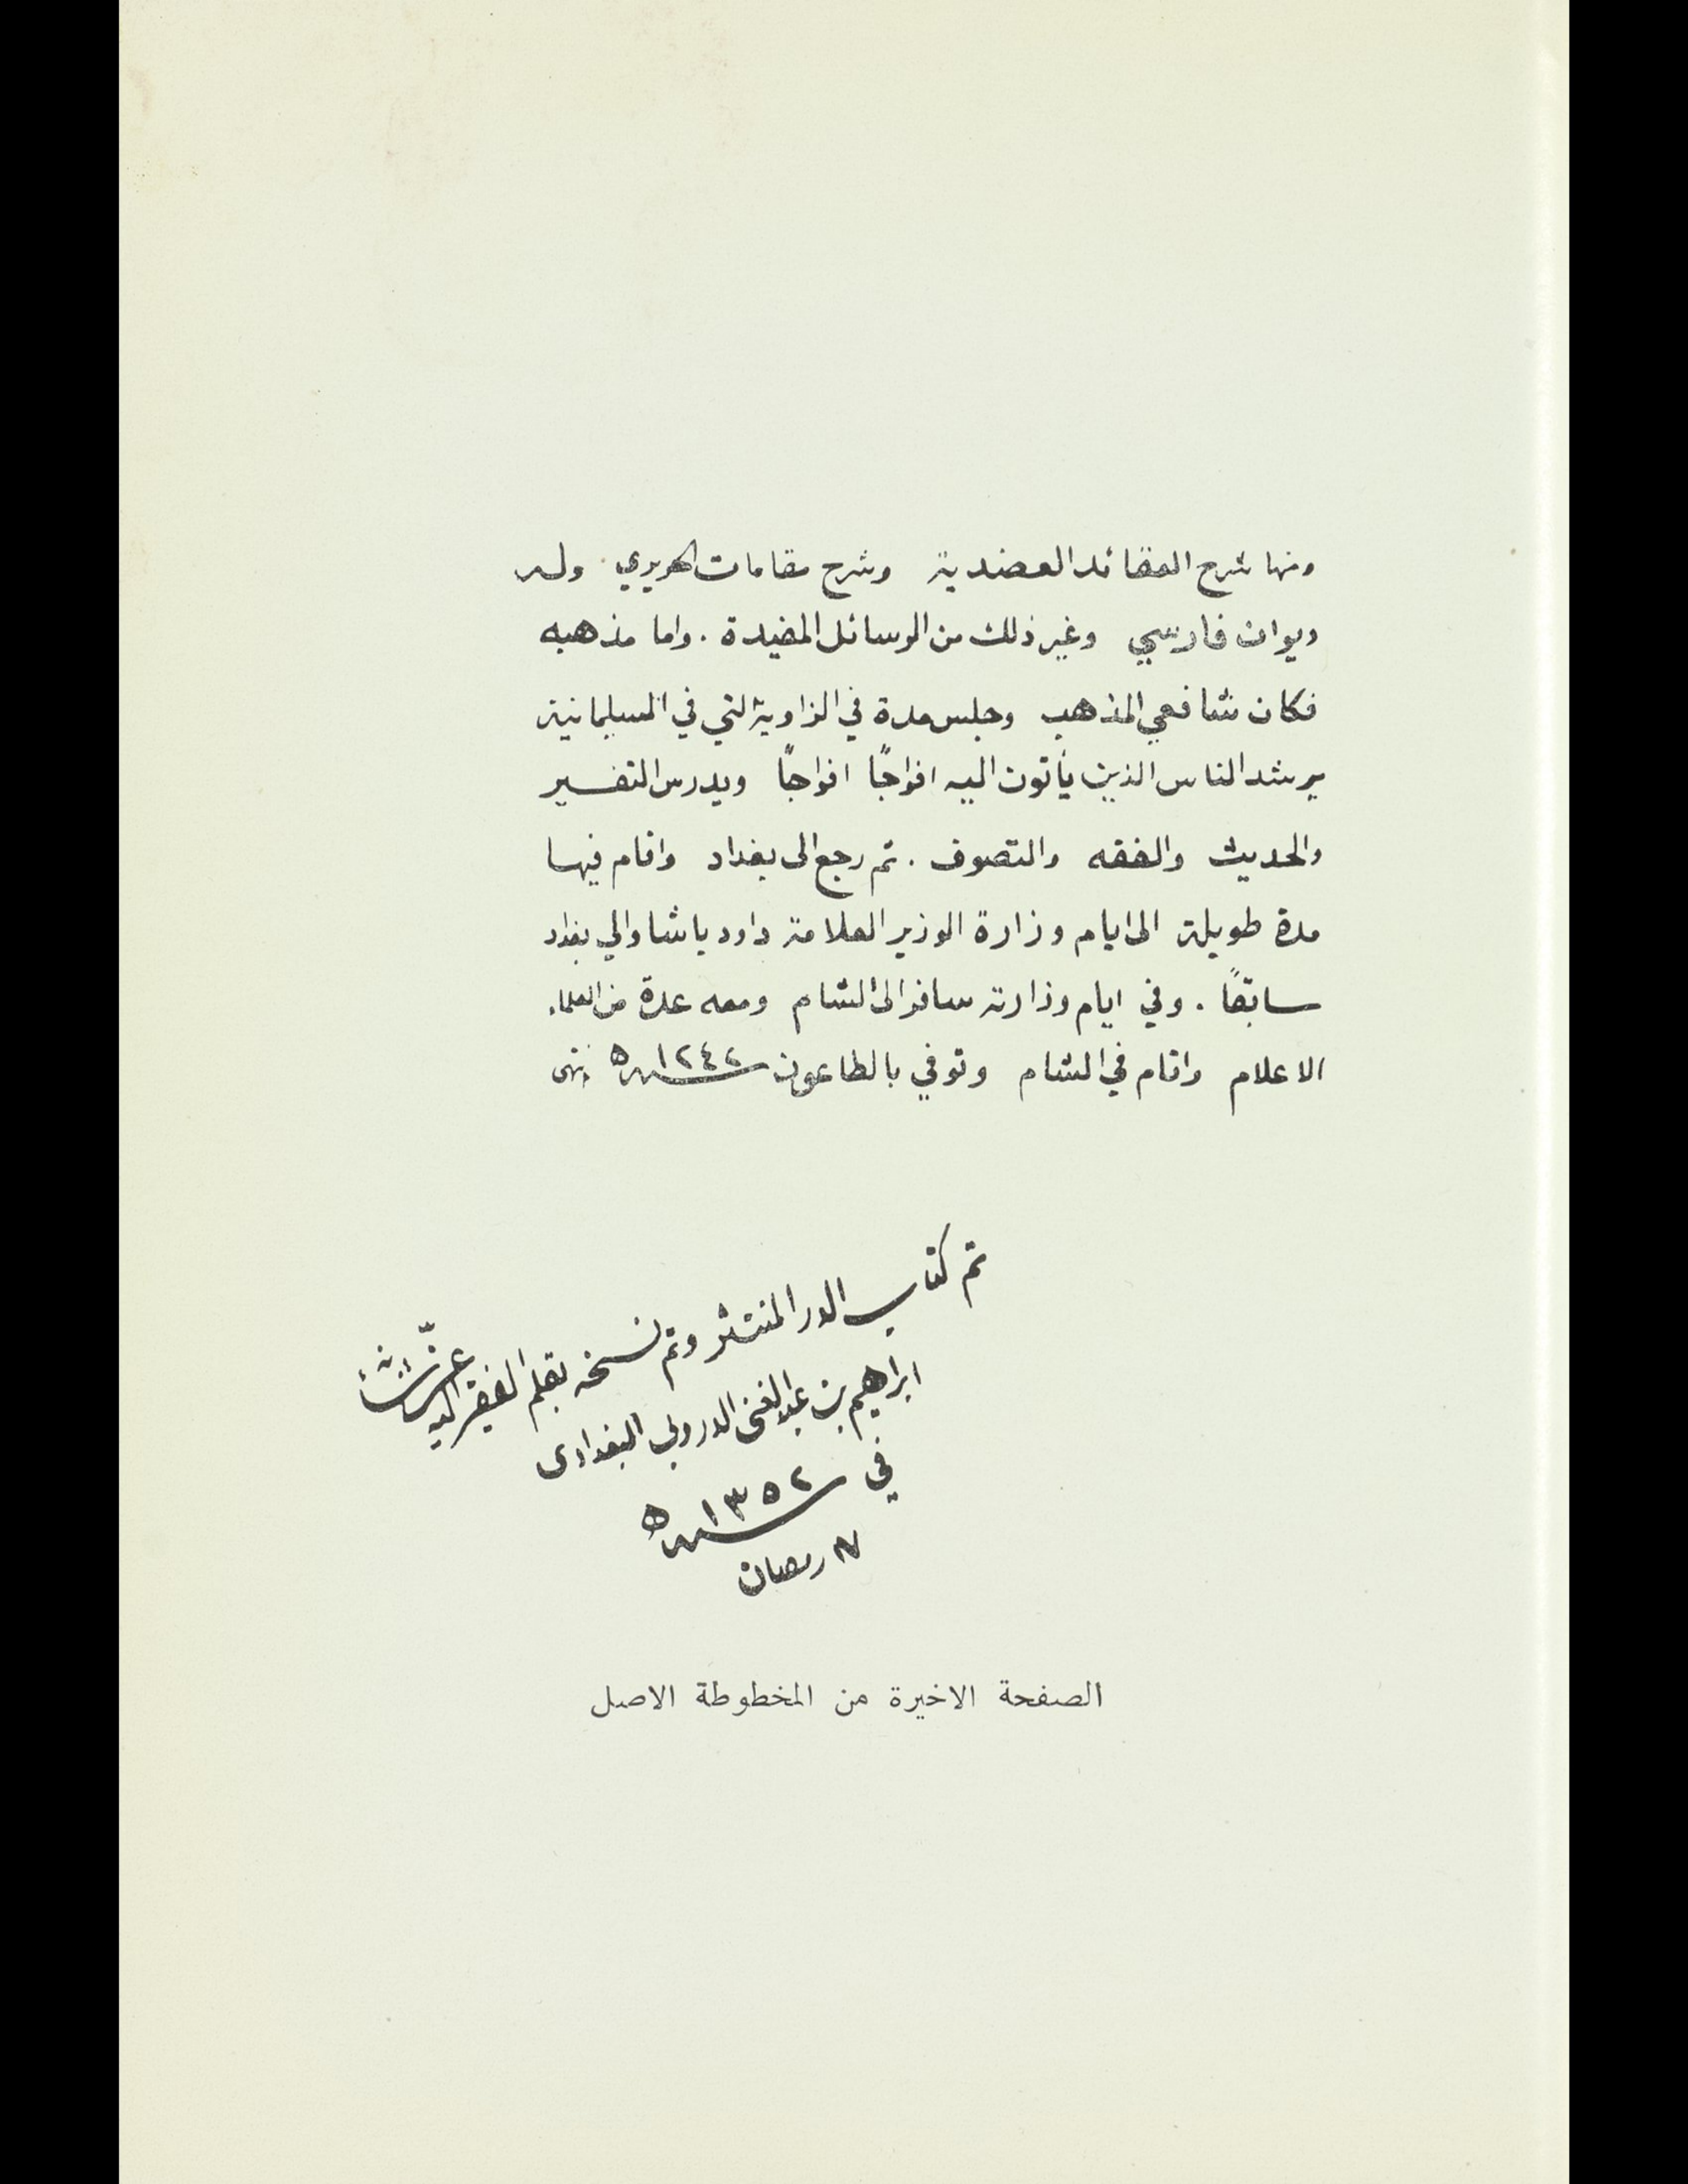 ومنها شرح العقائد العضدية وشرح مقامات الحريري وله
ديوان فارسي وغير ذلك من الرسائل المفيدة . واما مذهبه
فكان شافعي المذهب وجلس مدة في الزاوية التي في السليمانية
يرشد الناس الذين يأتون اليه افواجًا افواجًا ويدرس التفسير
والحديث والفقه والتصوف . ثم رجع الى بغداد واقام فيها
مدة طويلة الى ايام وزارة الوزير العلامة داود باشا والي بغداد
سابقًا . وفي ايام وزارته سافر الى الشام ومعه عدة من العلماء
الاعلام واقام في الشام وتوفي بالطاعون سنة ١٢٤٢ ه انتهى
تم كتاب الدر المنتثر وتم نسخه بقلم الفقير اليه عزّ شأنه
ابراهيم بن عبد الغني الدروبي البغدادي
في سنة ١٣٥٢ ه
١٧ رمضان
الصفحة الاخيرة من المخطوطة الاصل